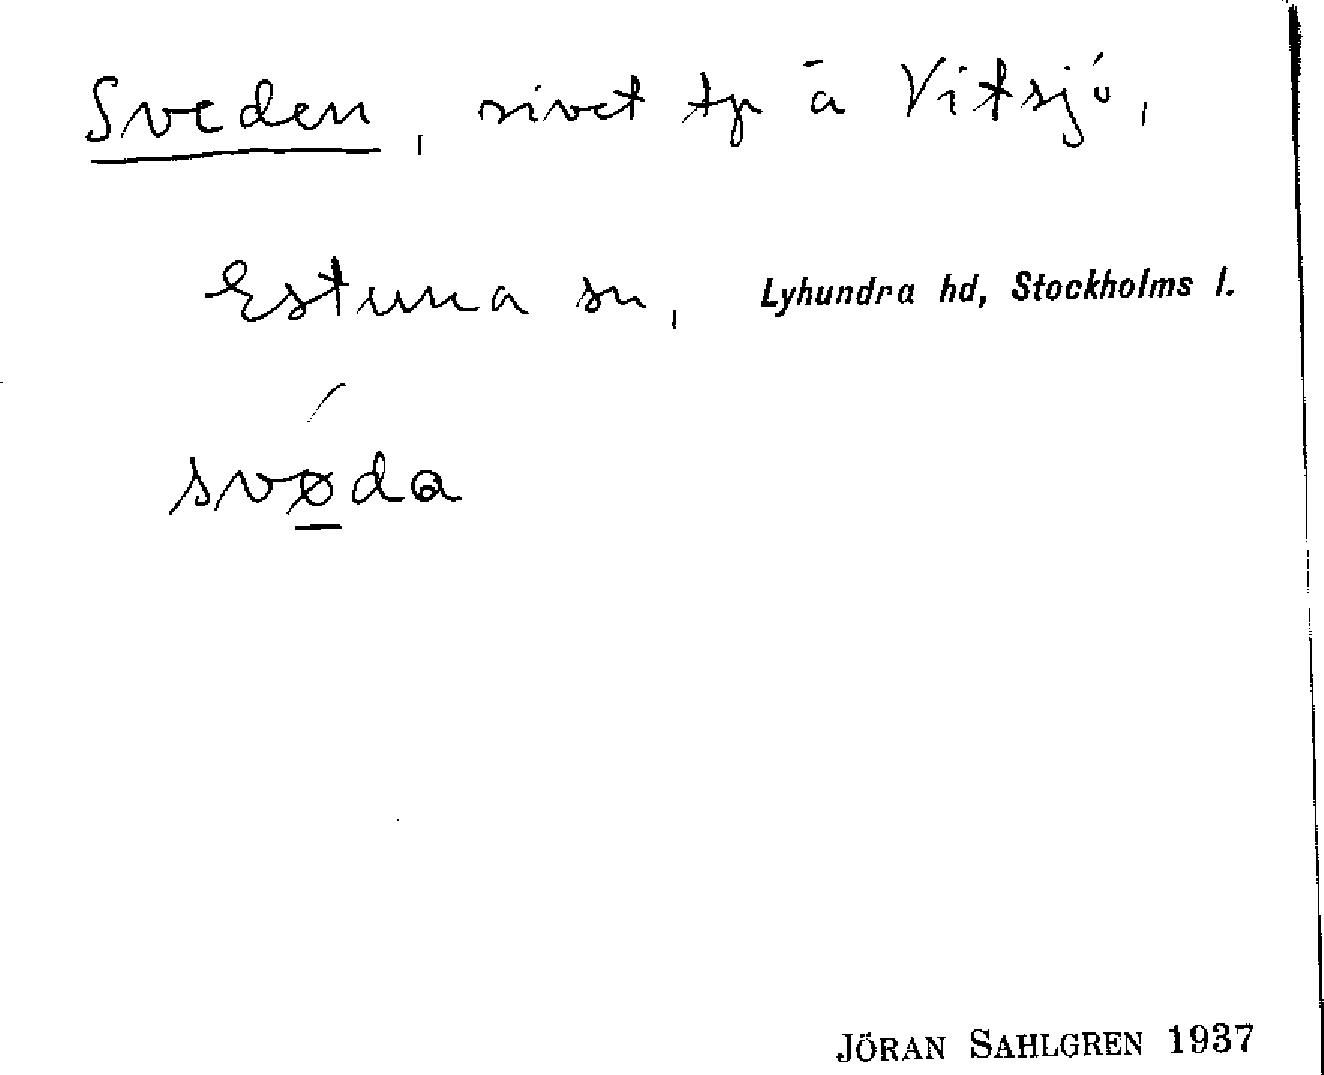 Sveden, rivet tp å Vitsjö,
Estuna sn, Lyhundra hd, Stockholms l.
svøda
JÖRAN SAHLGREN 1937